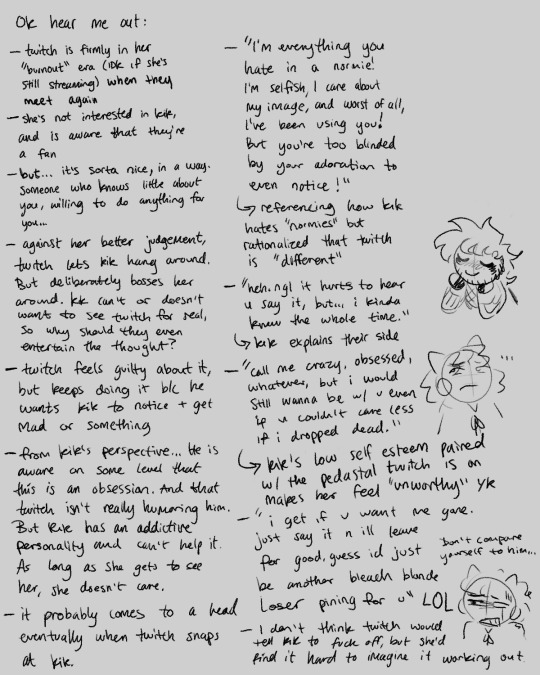 Ok hear me out:
— twitch is firmly in her
"burnout" era (IDK if she's
still streaming) when they
meet again
— she's not interested in kik,
and is aware that they're
a fan
— but... it's sorta nice, in a way.
Someone who knows little about
you, willing to do anything for
you...
— against her better judgement,
twitch lets kik hang around.
But deliberately bosses her
around. kik can't or doesn't
want to see twitch for real,
so why should they even
entertain the thought?
— twitch feels guilty about it,
but keeps doing it b/c he
wants kik to notice + get
mad or something
— from kik's perspective... He is
aware on some level that
this is an obsession. And that
twitch isn't really humoring him.
But kik has an addictive
personality and can't help it.
As long as she gets to see
her, she doesn't care.
— it probably comes to a head
eventually when twitch snaps
at kik.
— "I'm everything you
hate in a normie!
I'm selfish, I care about
my image, and worst of all,
I've been using you!
But you're too blinded
by your adoration to
even notice!"
↳ referencing how kik
hates "normies" but
rationalized that twitch
is "different"
— "heh. ngl it hurts to hear
u say it, but... i kinda
knew the whole time."
↳ kik explains their side
— "call me crazy, obsessed,
whatever, but i would
still wanna be w/ u even
if u couldn't care less
if i dropped dead."
↳ kik's low self esteem paired
w/ the pedastal twitch is on
makes her feel "unworthy" yk
— "i get if u want me gone.
just say it n ill leave
for good, guess id just
be another bleach blonde
loser pining for u" LOL
Don't compare
yourself to him...
— I don't think twitch would
tell kik to fuck off, but she'd
find it hard to imagine it working out